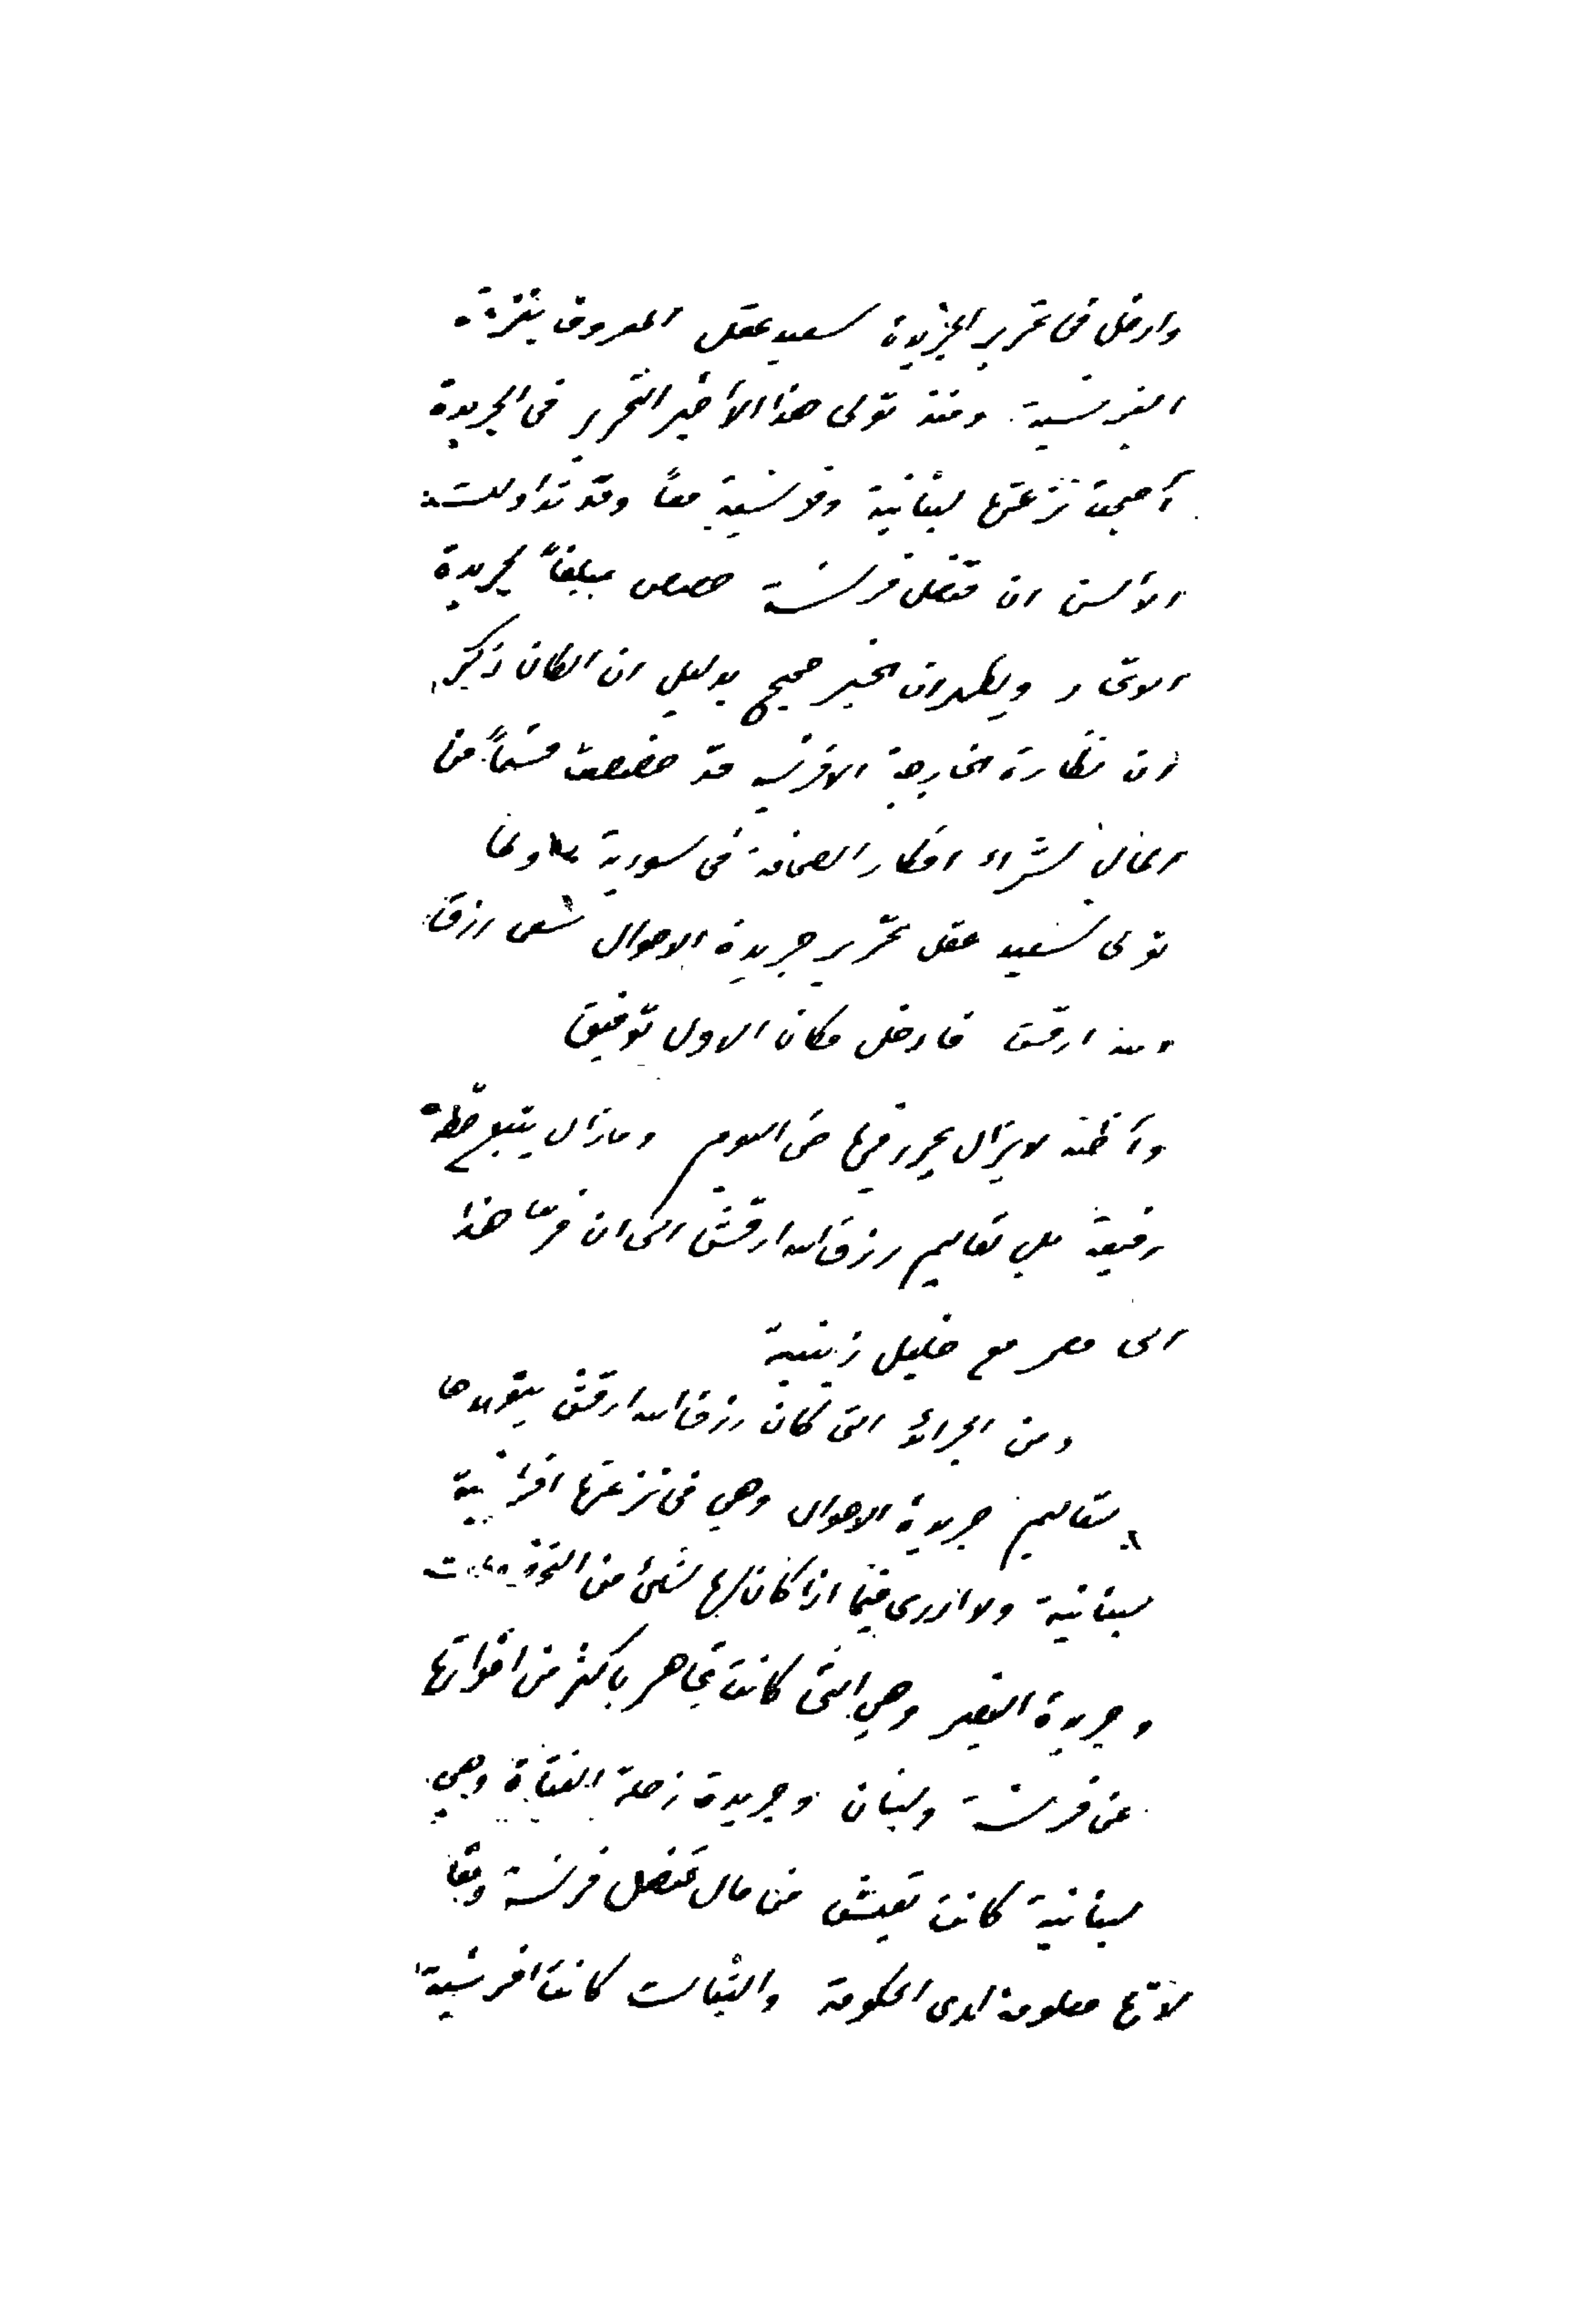 وادخل في تحرير الجريدة سعيد عقل المعروف بنزعته
الفرنسية. ومنذ تولى هذا الأخير التحرير في الجريدة
أصبحت نزعتها لبنانية وفرنسية معاً وقد تداولت
الألسن ان قنصل فرنسة خصص مبلغاً لجريدة
الاتحاد ويظهر ان الخبر صحيح بدليل ان الطان ذكر
ان نظارة الخارجية الافرنسية قد خصصت قسماً من
المال لشراء افكار الصحافة في سورية ولما
تولى سعيد عقل تحرير جريدة الاحوال سعى رزق
الله ارقش فادخل مكان الاول توفيق
وأظنه لا يزال يحرر فيها حتى اليوم وما زال يتبع خطة
رفيقه على تعاليم رزق الله ارقش الى ان فر هذا
الى مصر مع خليل زينية
ومن الجرائد التي كان رزق الله ارقش يقودها
بتعاليمه جريدة الاحوال وهي في نزعتها افرنسية
لبنانية ولا ادري فيما اذا كان لها شيء من
وجريدة النصير وهي التي كانت تجاهر باكثر من اخواتها
عن فرنسة ولبنان وجريدة زحلة الفتاة وهي
لبنانية كانت تعيش من مال قنصل فرنسة
لأنها معلومة لدى الحكومة والثبات كانت افرنسية